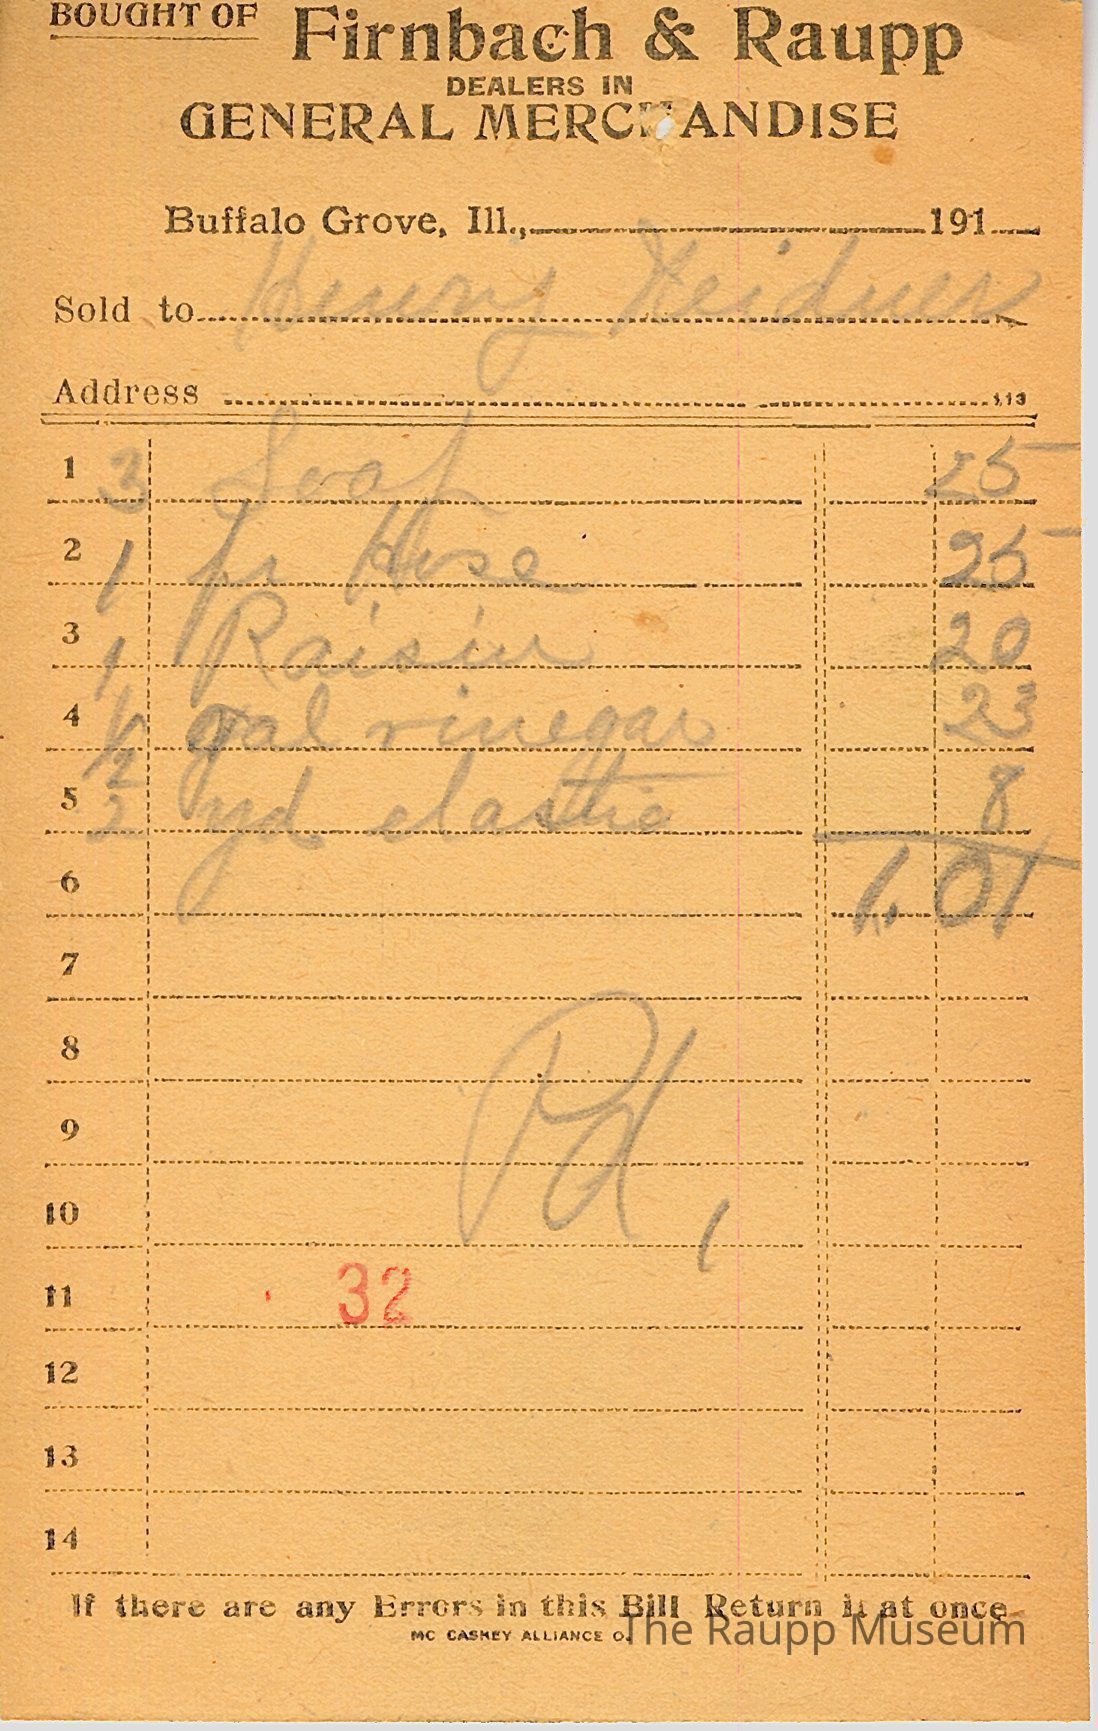 BOUGHT OF Firnbach & Raupp
DEALERS IN
GENERAL MERCHANDISE
Buffalo Grove, Ill., 191
Sold to Henry Weidner
Address 113
1 3 Soap 25
2 1 pr Hose 25
3 1 Raisin 20
4 1/2 gal vinegar 23
5 2 yd elastic 8
6 1.01
7
8
9
Pd,
10
11 32
12
13
14
If there are any Errors in this Bill Return it at once
MC CASKEY ALLIANCE O.
The Raupp Museum